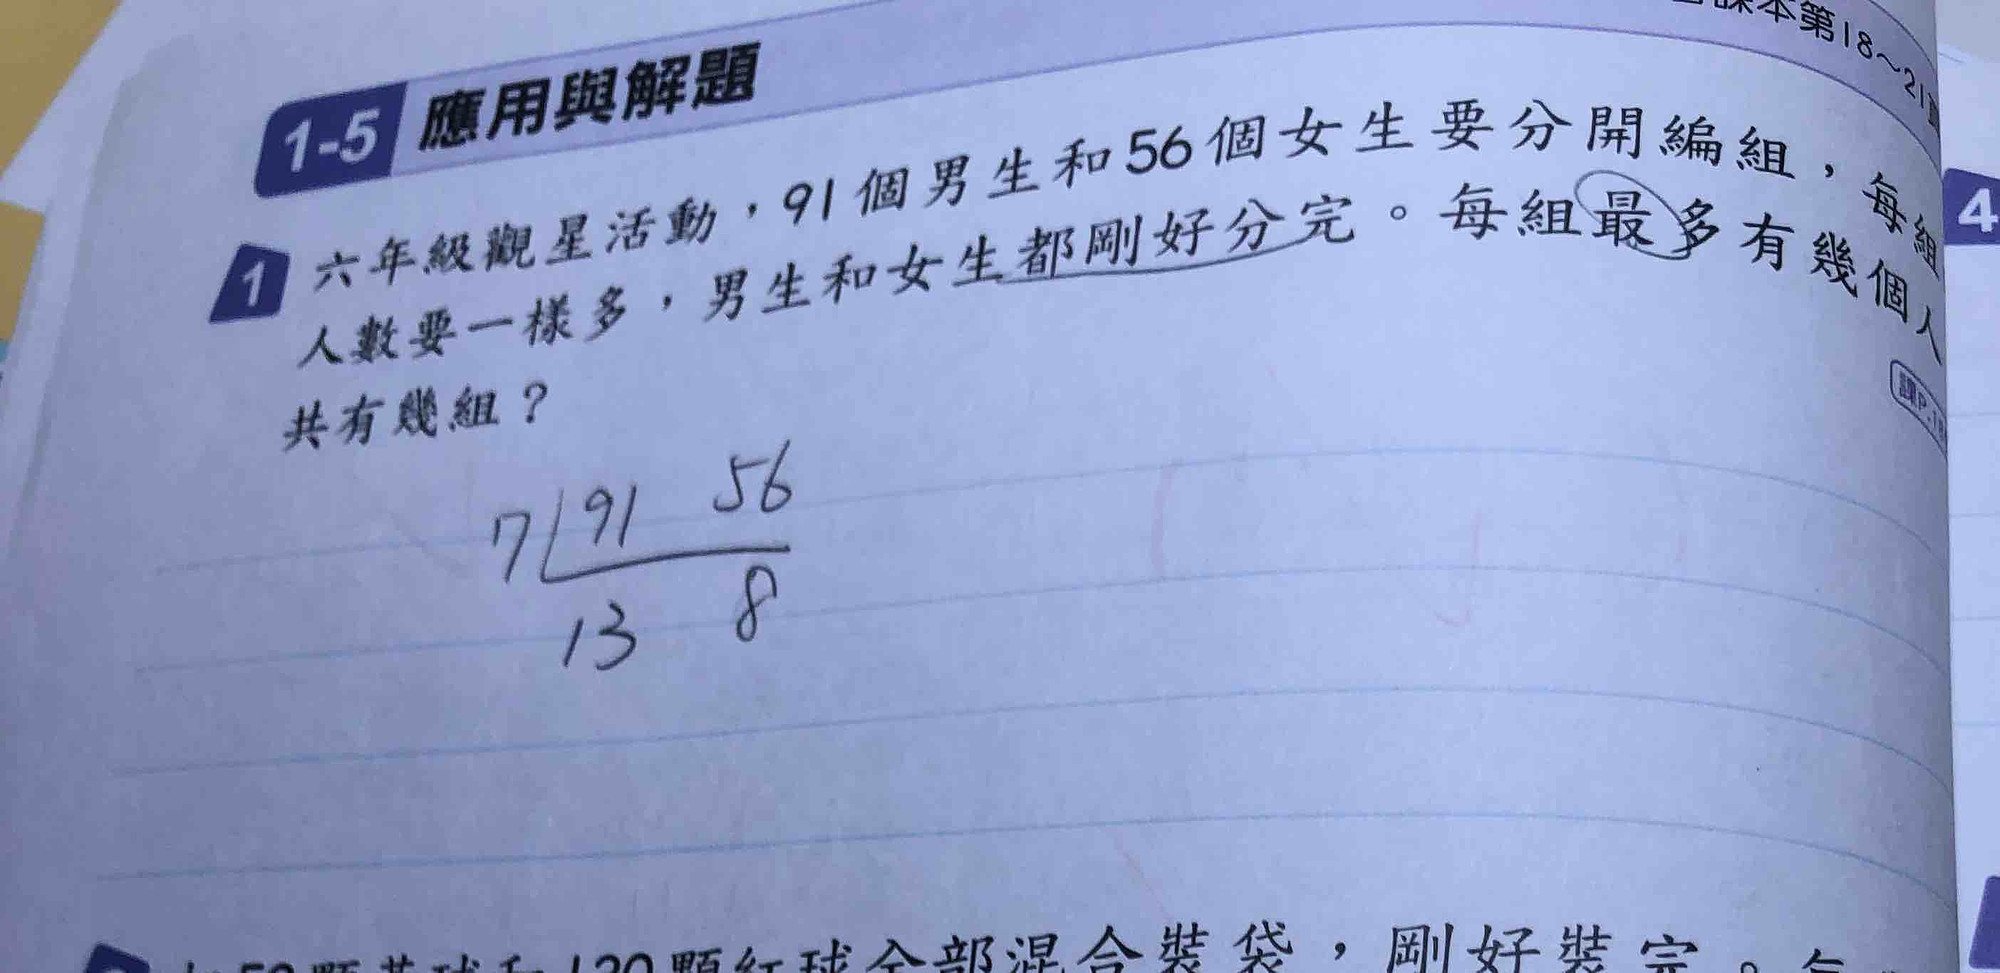 課本第18～21頁
1-5 應用與解題
1 六年級觀星活動，91個男生和56個女生要分開編組，每組
人數要一樣多，男生和女生都剛好分完。每組最多有幾個人
共有幾組？
課P.18
7 91 56
13 8
顆紅球全部混合裝袋，剛好裝完。每
4